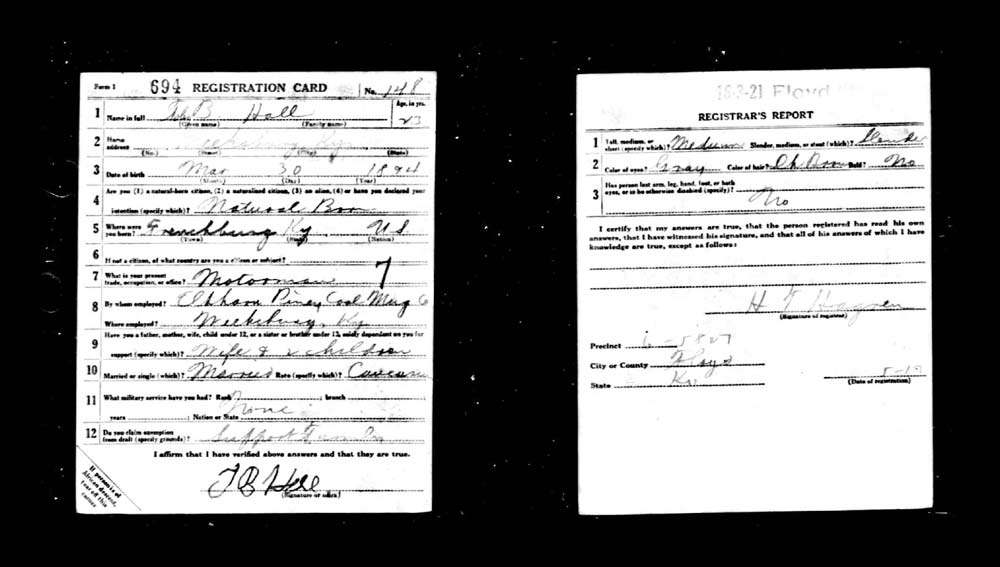 Form 1 694 REGISTRATION CARD No. 148
1 Name in full B. Hall Age, in yrs. 23
(Given name) (Family name)
2 Home address Ky
(No.) (Street) (City) (State)
3 Date of birth Mar 30 1894
(Month) (Day) (Year)
4 Are you (1) a natural-born citizen, (2) a naturalized citizen, (3) an alien, (4) or have you declared your
intention (specify which)? Natural Born
5 Where were you born? Frenchburg Ky US
(Town) (State) (Nation)
6 If not a citizen, of what country are you a citizen or subject?
7 What is your present trade, occupation, or office? Motorman 7
8 By whom employed? Elkhorn Piney Coal Mng Co
Where employed? Weeksbury, Ky
9 Have you a father, mother, wife, child under 12, or a sister or brother under 12, solely dependent on you for
support (specify which)? Wife & 2 children
10 Married or single (which)? Married Race (specify which)? Caucasian
11 What military service have you had? Rank ; branch
None
years ; Nation or State
12 Do you claim exemption from draft (specify grounds)? Support
I affirm that I have verified above answers and that they are true.
(Signature or mark)
If person is of
African descent,
tear off this
corner
16-3-21 Floyd
REGISTRAR'S REPORT
1 Tall, medium, or short (specify which)? Medium Slender, medium, or stout (which)? Slender
2 Color of eyes? Gray Color of hair? Bald? No
3 Has person lost arm, leg, hand, foot, or both
eyes, or is he otherwise disabled (specify)?
No
I certify that my answers are true, that the person registered has read his own
answers, that I have witnessed his signature, and that all of his answers of which I have
knowledge are true, except as follows:
(Signature of registrar)
Precinct
City or County Floyd
State Ky.
(Date of registration)